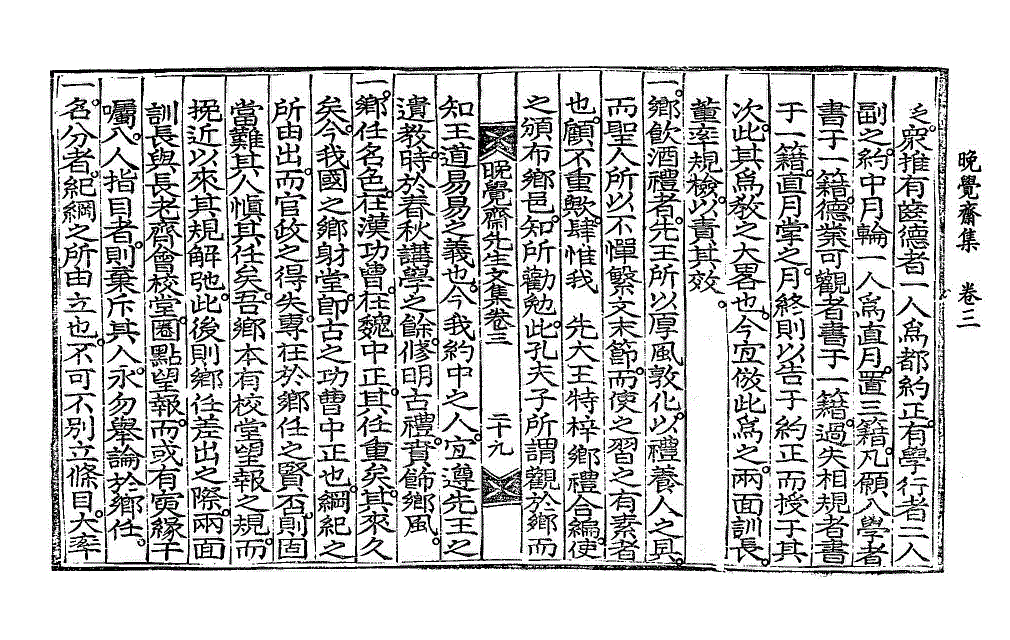 晩覺齋集　卷三
乏窮推有齒德者一人爲都約正有學行者二人
副之約中月輪一人爲直月置三籍凡願入學者
書于一籍德業可觀者書于一籍過失相規者書
于一籍直月掌之月終則以告于約正而授于其
次此其爲敎之大畧也今宜倣此爲之兩面訓長
董率規檢以責其效
一鄕飮酒禮者先王所以厚風敦化以禮養人之具
而聖人所以不憚繁文末節而使之習之有素者
也顧不重歟肆惟我　先大王特梓鄕禮合編使
之頒布鄕邑知所勸勉此孔夫子所謂觀於鄕而
晩覺齋先生文集卷三　二十九
知王道易易之義也今我約中之人宜遵先王之
遺敎時於春秋講學之餘修明古禮賁飾鄕風
一鄕任名色在漢功曹在魏中正其任重矣其來久
矣今我國之鄕射堂卽古之功曹中正也綱紀之
所由出而官政之得失專在於鄕任之賢否則固
當難其人愼其任矣吾鄕本有校堂望報之規而
挽近以來其規解弛此後則鄕任差出之際兩面
訓長與長老齊會校堂圈點望報而或有夤緣干
囑入人指目者則棄斥其人永勿擧論於鄕任
一名分者紀綱之所由立也不可不別立條目大率